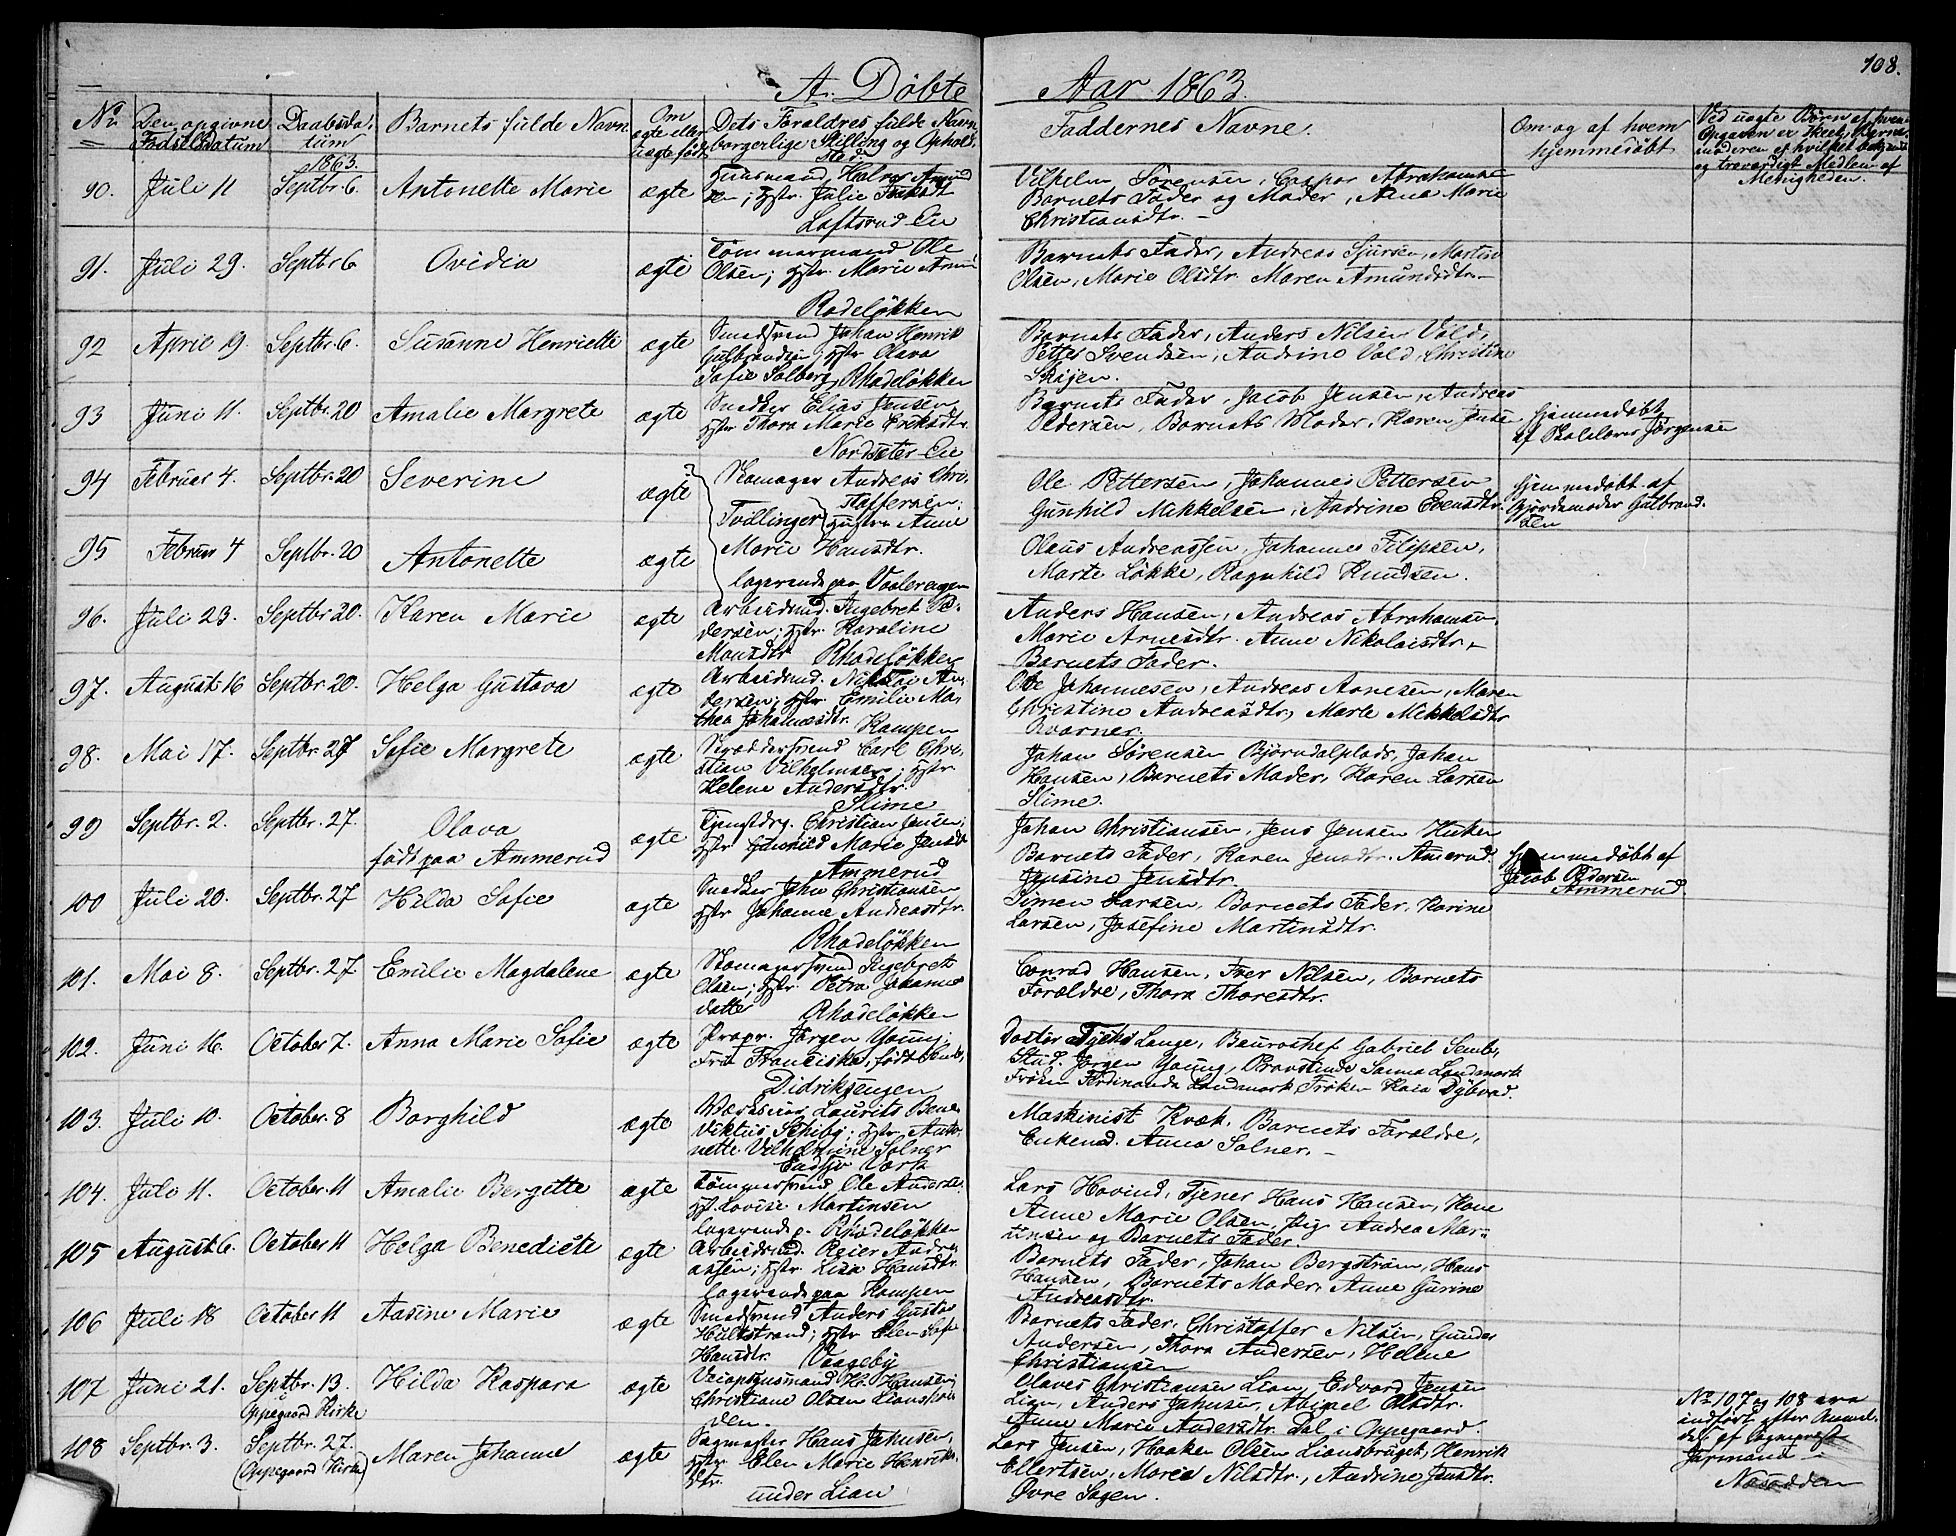 108.
A. Døbte Aar 1863.
No Den opgivne Fødselsdatum Daabsdatum Barnets fulde Navn Om ægte eller uægte født Dets Forældres fulde Navn borgerlige Stilling og Opholdssted Faddernes Navne. Om og af hvem hjemmedøbt Ved uægte Børn af hvem Opgaven er skeet,
og troværdigt Medlem af
Menigheden.
1863.
90. Juli 11 Septbr 6. Antonette Marie ægte Huusmand
Loftsrud Eie
Vilhelm Sørensen, Caspar Abrahamsen
Barnets Fader og Moder, Anna Marie
Christiansdtr. -
91. Juli 29. Septbr 6 Ovidia ægte Tømmermand Ole
Olsen; Hstr. Marie
Rodeløkken
Barnets Fader, Andreas Sjursen, Martin
Olsen, Marie Olsdtr. Maren Amundsdtr.-
92 April 19. Septbr. 6. Susanne Henriette ægte Smedsvend Johan Henrik
Gulbrandsen; Hstr Olava
Sofie Solberg, Rhodeløkken
Barnets Fader, Anders Nilsen Vold,
Petter Svendsen, Andrine Vold, Christine
93 Juni 11. Septbr. 20 Amalie Margrete ægte Snedker Elias Jensen
Hstr Thora Marie Eriksdtr.
Nordseter Eie
Barnets Fader, Jacob Jensen, Andreas
Pedersen, Barnets Moder, Karen
Hjemmedøbt
af Skolelærer Jørgensen
94 Februar 4. Septbr. 20 Severine ægte Skomager Andreas Chri-
stoffersen;
Tvillinger Hustru Anne
Ole Pettersen, Johannes Pettersen
Gunhild Mikkelsen, Andrine Evensdtr.
Hjemmedøbt af
Gjordemoder Gulbrand-
sen
95 Februar 4 Septbr. 20 Antonette ægte Marie Hansdtr.
logerende paa Vaalerengen
Olaus Andreassen, Johannes Filipsen,
Marte Løkke, Ragnhild Knudsen.
96. Juli 23. Septbr. 20. Karen Marie ægte Arbeidsmd. Ingebret Pe-
dersen; Hstr. Karoline
Monsdtr Rhodeløkken
Anders Hansen, Andreas Abrahamsen,
Marie Arnesdtr. Anne Nikolaisdtr.-
Barnets Fader.
97. August 16 Septbr. 20. Helga Gustava ægte Arbeidsmd. Nikolai An-
dersen; Hstr. Emilie Ma-
thea Johannesdtr. Kampen
Ole Johannesen, Andreas Arnesen, Maren
Christine Andreasdtr, Marte Mikkelsdtr
Kværner.
98. Mai 17. Septbr. 27 Sofie Margrete ægte Skræddersvend Carl Chri-
stian Vilhelmsen; Hstr.
Helene Andersdtr.
Slime
Johan Sørensen Bjørndalplads, Johan
Hansen, Barnets Moder, Karen Larsen
Slime.
99 Septbr. 2. Septbr. 27. Olava
født paa Ammerud ægte Tjenestdrg. Christian Jensen;
Hstr Gunhild Marie Jensdtr
Ammerud
Johan Christiansen, Jens Jensen Huken
Barnets Fader, Karen Jensdtr. Amerud.
Jensine Jensdtr.
Hjemmedøbt af
Jacob Pedersen
Ammerud.
100 Juli 20. Septbr. 27 Hilda Sofie ægte Snedker John Christiansen
Hstr Johanne Andreasdtr.
Rhodeløkken
Simen Larsen, Barnets Fader, Karine
Larsen, Josefine Martinsdtr.
101. Mai 8. Septbr. 27 Emilie Magdalene ægte Skomagersvend Ingebret
Olsen; Hstr. Petra Johannes
datter Rhodeløkken
Conrad Hansen, Iver Nilsen, Barnets
Forældre, Thora Thoresdtr.
102. Juni 16. October 7. Anna Marie Sofie ægte Propr. Jørgen Young;
Fru Franciska, født Semb,
Didriksengen
Doctor Lange, Bureauchef Gabriel Semb,
Stud. Jørgen Young, Provstinde Sanna Landmark
Frøken Ferdinanda Landmark Frøken Kaia Dybvad.
103. Juli 10. October. 8 Borghild ægte Laurits Bene-
diktus Schiby; Hstr. Anto-
nette Vilhelmine Solner
Maskinist Kvæk, Barnets Forældre,
Enkemd. Anna Solner. -
104. Juli 11. October. 11 Amalie Bergitte ægte Tømmersvend Ole Anderse
Hst. Lovise Martinsen
logerende p. Rhodeløkken
Lars Hovind, Tjener Hans Hansen, Kone
Anne Marie Olsen, Pig. Andrea Mar-
tinsen og Barnets Fader.
105 August 6. October 11 Helga Benedicte ægte Arbeidsmd. Reier Andre
assen; Hstr. Lisa Hansdtr.
logerende paa Kampen
Barnets Fader, Johan Bergstrøm, Hans
Hansen, Barnets Moder, Anne Gurine
Andreasdtr.
106 Juli 18 October 11 Aasine Marie ægte Smedsvend Anders Gustav
Hultstrand; Hstr Elen Sofie
Hansdtr. Vaageby
Barnets Fader, Christoffer Nilsen, Gunder
Andersen, Thora Andersen, Helene
Christiansen
107 Juni 21. Septbr. 13.
i
Oppegaard Kirke Hilda Kaspara ægte Veiopsynsmand H. Hansen;
Christiane Olsen
den.
Olaves Christiansen Lian, Edvard Jensen
Lian, Anders Johnsen, Abigael Olsdtr.
Anne Marie Andersdtr. Dal i Oppegaard.
No 107 og 108 ere
indført efter Anmel-
delse af Sognepræst
Jørmand -
Næsodden
108 Septbr. 3. Septbr. 27.
(Oppegaard Kirke) Maren Johanne ægte Sagmester Hans Johnsen,
Hstr. Elen Marie Henriks-
dtr.
under Lian
Lars Jensen, Haaken Olsen Liansbruget, Henrik
Ellertsen, Maria Nilsdtr., Andrine Jensdtr.
Øvre Sagen.